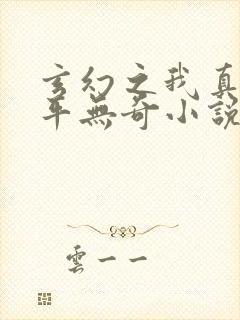 玄幻之我真
平無奇小說
雲一一